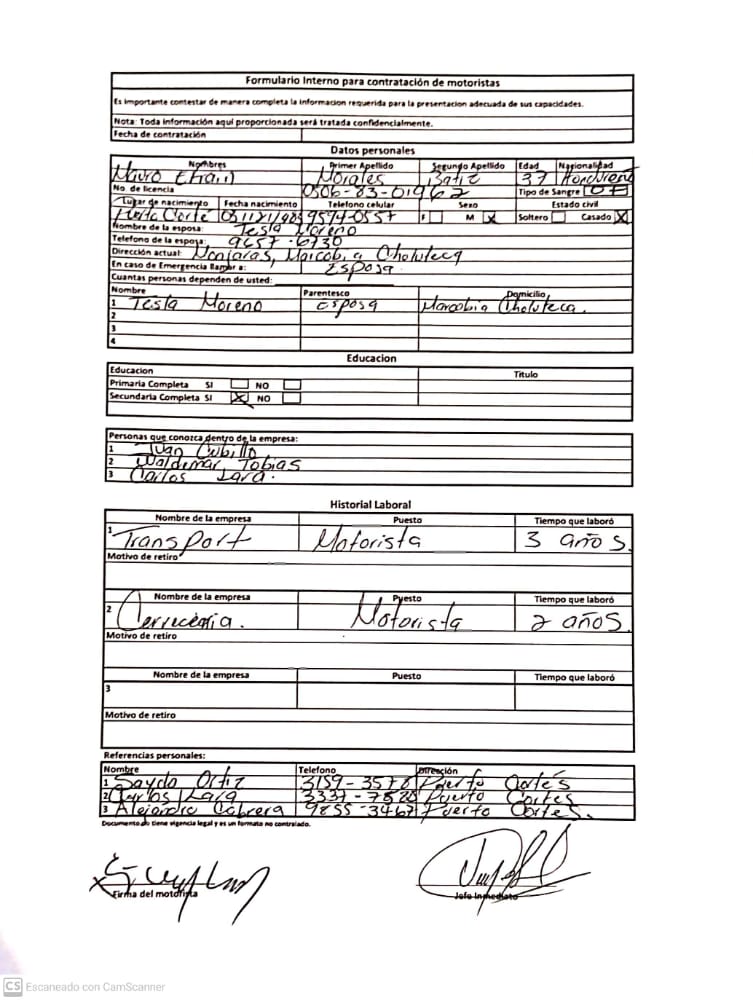 Formulario Interno para contratación de motoristas
Es importante contestar de manera completa la informacion requerida para la presentacion adecuada de sus capacidades.
Nota: Toda información aquí proporcionada será tratada confidencialmente.
Fecha de contratación
Datos personales
Nombres Primer Apellido Segundo Apellido Edad Nacionalidad
Mauro Morales Batiz 37 Hondureño
No. de licencia 0506-83-01962 Tipo de Sangre
Lugar de nacimiento Fecha nacimiento Telefono celular Sexo Estado civil
9594-0557 F M X Soltero Casado X
Nombre de la esposa: Tesla Moreno
Telefono de la esposa: 9657-6730
Dirección actual: Monjaras, Marcobia Choluteca
En caso de Emergencia llamar a: Esposa
Cuantas personas dependen de usted:
Nombre Parentesco Domicilio
1 Tesla Moreno Esposa Marcobia Choluteca.
2
3
4
Educacion
Educacion Titulo
Primaria Completa SI NO
Secundaria Completa SI X NO
Personas que conozca dentro de la empresa:
1 Juan Cubillo
2 Waldemar Tobias
3 Carlos Lara.
Historial Laboral
Nombre de la empresa Puesto Tiempo que laboró
1 Transport Motorista 3 años.
Motivo de retiro
Nombre de la empresa Puesto Tiempo que laboró
2 Cerveceria. Motorista 2 años.
Motivo de retiro
Nombre de la empresa Puesto Tiempo que laboró
3
Motivo de retiro
Referencias personales:
Nombre Telefono Dirección
1 Sayda Ortiz 3159-3578 Puerto Cortés
2 Carlos Lara 3337-7585 Puerto Cortes
3 Alejandro Cabrera 9855-3467 Puerto Cortes.
Documento no tiene vigencia legal y es un formato no controlado.
X
Firma del motorista Jefe Inmediato
CS Escaneado con CamScanner